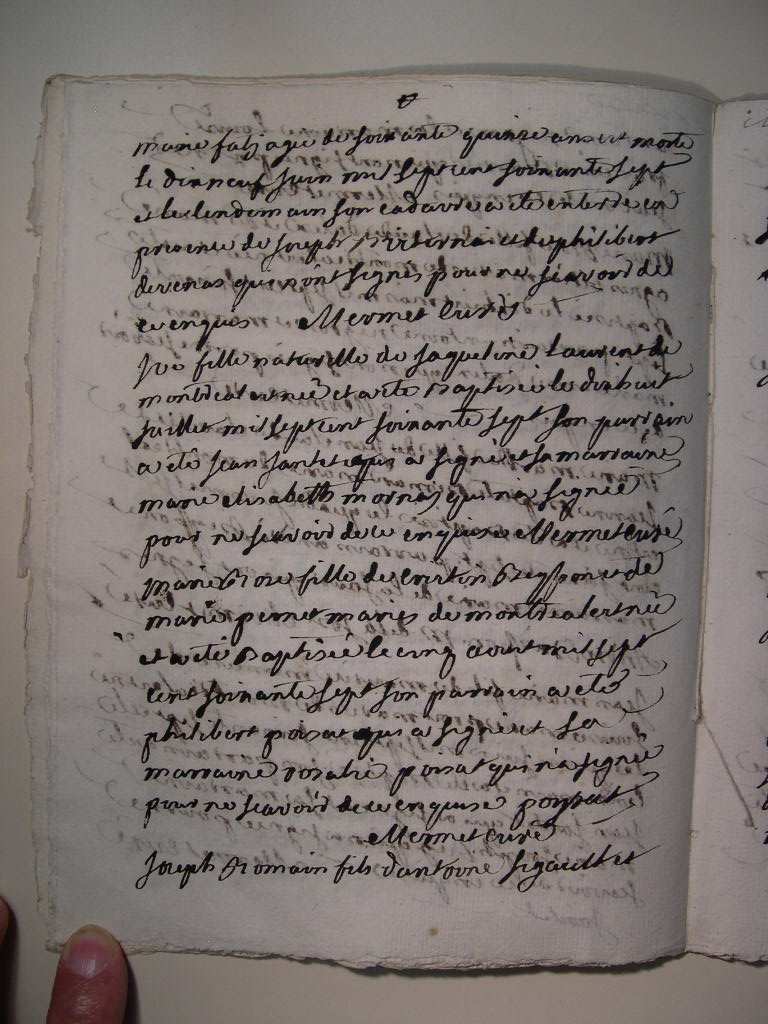 marie falz agée de soixante quinze ans est morte
le dixneuf juin mil sept cent soixante sept
et le lendemain son cadavre a eté enterré en
presence de joseph et de philibert
qui n'ont signés pour ne sçavoir de
ce enquis Mermet curé
fille naturelle de jaqueline laurent de
montreal est neé et a eté baptisée le dixhuit
juillet mil sept cent soixante sept son parrain
a eté jean jantet qui a signé et sa marraine
marie elisabeth mornas qui n'a signée
pour ne sçavoir de ce enquise Mermet curé
marie rose fille de et de
marie pernet mariés de montreal est née
et a eté baptisée le cinq aoust mil sept
cent soixante sept son parrain a eté
philibert poisat qui a signé et sa
marraine rosalie poisat qui n'a signée
pour ne sçavoir de ce enquise poysat
Mermet curé
joseph romain fils d'antoine sigault et